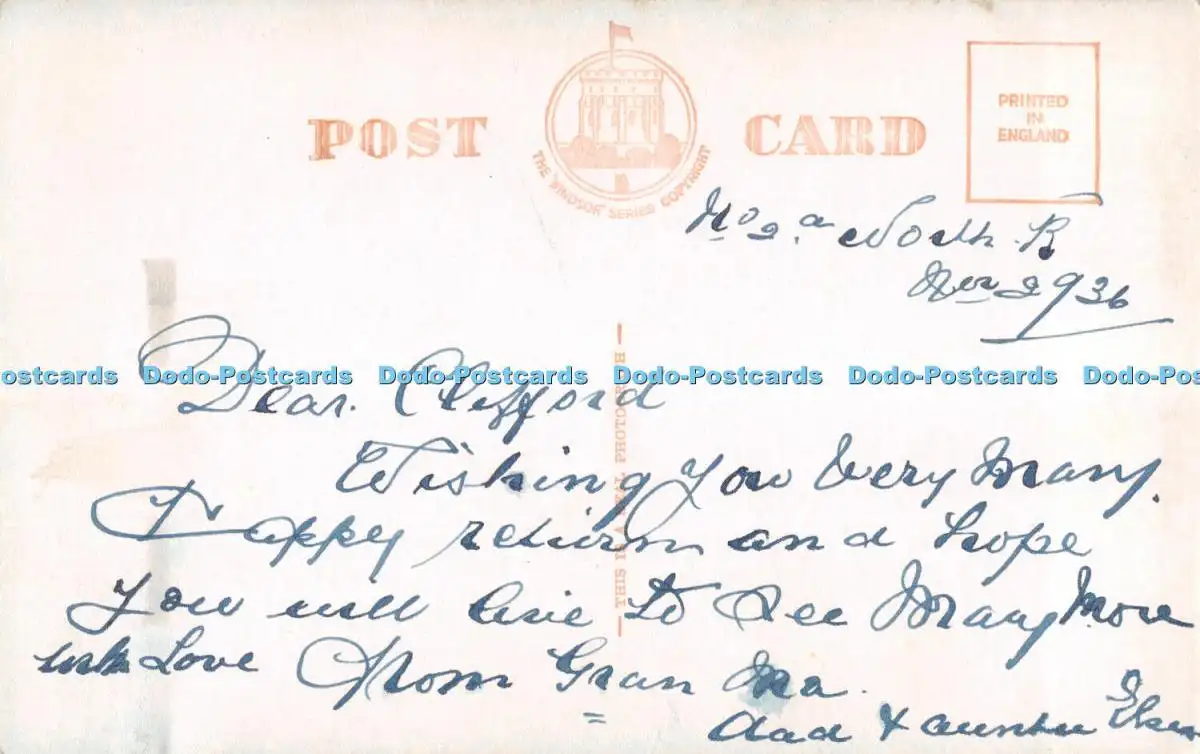 POST CARD
THE "WINDSOR" SERIES COPYRIGHT
PRINTED
IN
ENGLAND
No 2.a North. R
Nov 2 936
ostcards Dodo-Postcards Dodo-Postcards Dodo-Postcards Dodo-Postcards Dodo-Postc
Dear. Clifford
Wishing you Very Many.
Happy return and hope
you will live to see Many More
with Love From Gran Ma.
dad & auntie
THIS IS A REAL PHOTOGRAPH